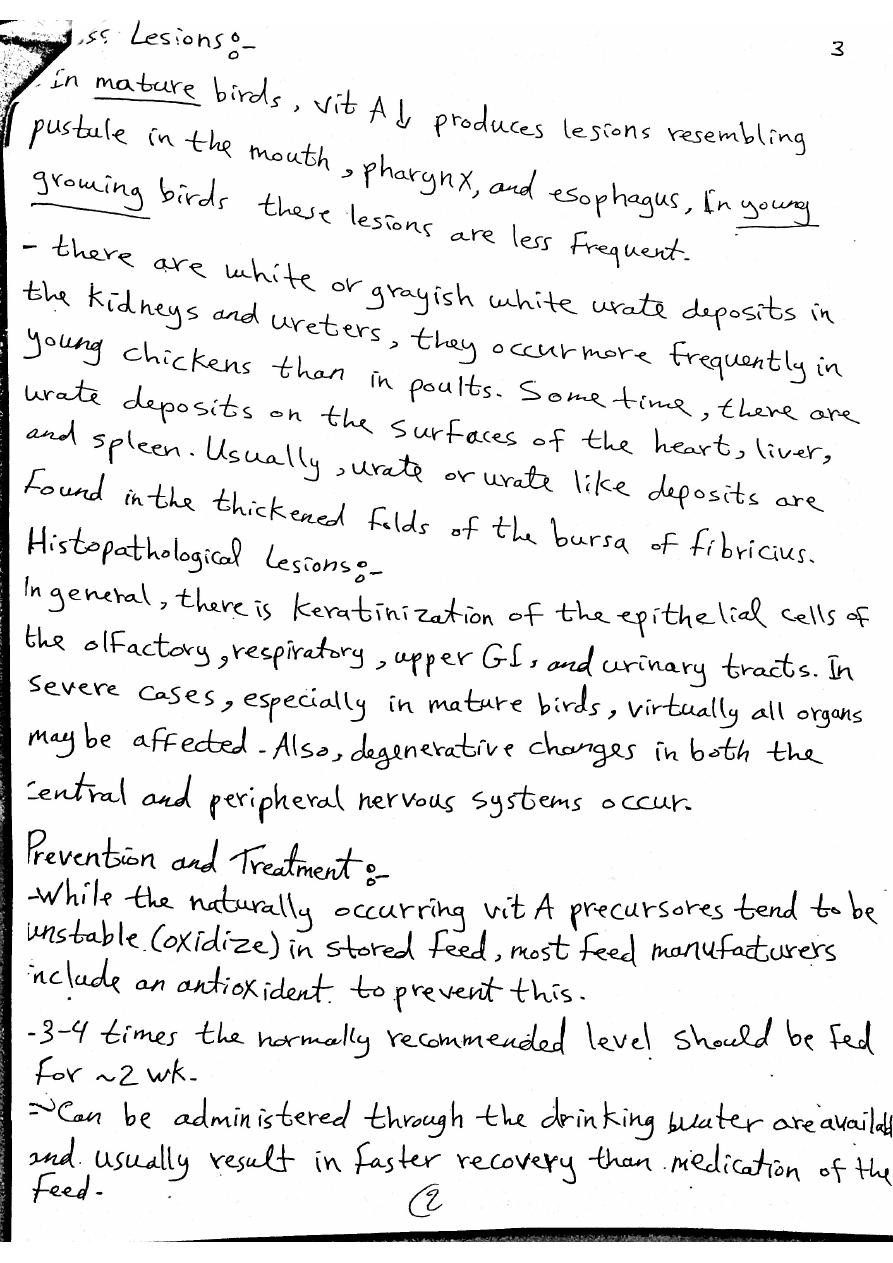 ss Lesions:-
3
in mature birds, vit A↓ produces lesions resembling
pustule in the mouth, pharynx, and esophagus, In young
growing birds these lesions are less frequent.
- there are white or grayish white urate deposits in
the kidneys and ureters, they occur more frequently in
young chickens than in poults. Some time, there are
urate deposits on the surfaces of the heart, liver,
and spleen. Usually, urate or urate like deposits are
found in the thickened folds of the bursa of fibricius.
Histopathological Lesions:-
In general, there is keratinization of the epithelial cells of
the olfactory, respiratory, upper GI, and urinary tracts. In
severe cases, especially in mature birds, virtually all organs
may be affected - Also, degenerative changes in both the
central and peripheral nervous systems occur.
Prevention and Treatment:-
-While the naturally occurring vit A precursores tend to be
unstable (oxidize) in stored feed, most feed manufacturers
include an antioxident to prevent this.
-3-4 times the normally recommended level should be fed
for ~2 wk-
Can be administered through the drinking water are availabl
and usually result in faster recovery than medication of the
feed-
2